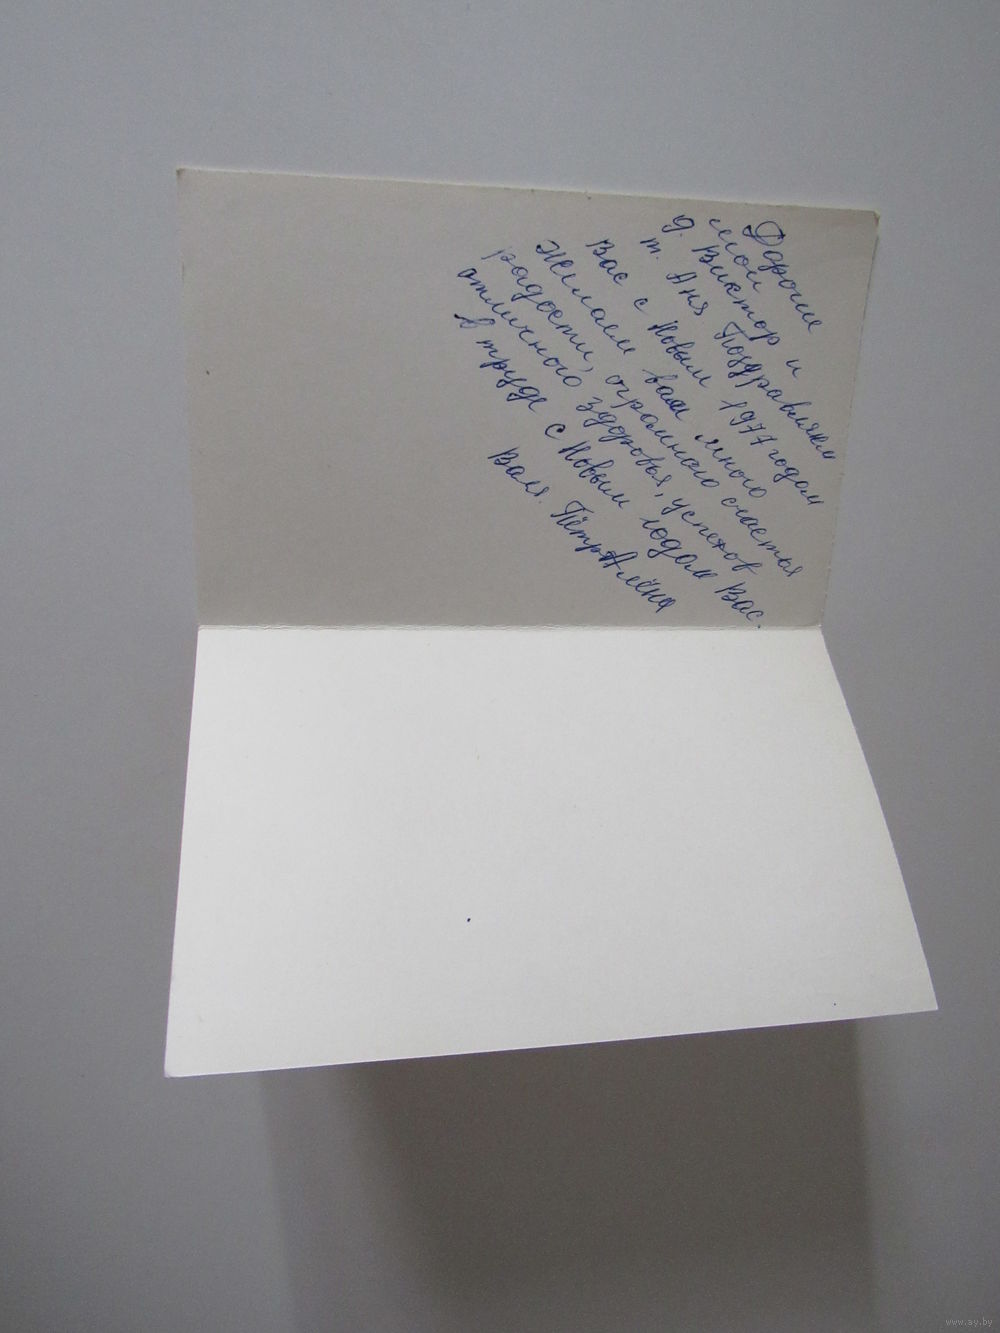 Дорогие
мои
д. Виктор и
т. Аня. Поздравляем
Вас с Новым 1977 годом
Желаем вам много
радости, огромного счастья
отличного здоровья, успехов
в труде с Новым годом Вас.
Валя. Пётр Алёна
www.ay.by